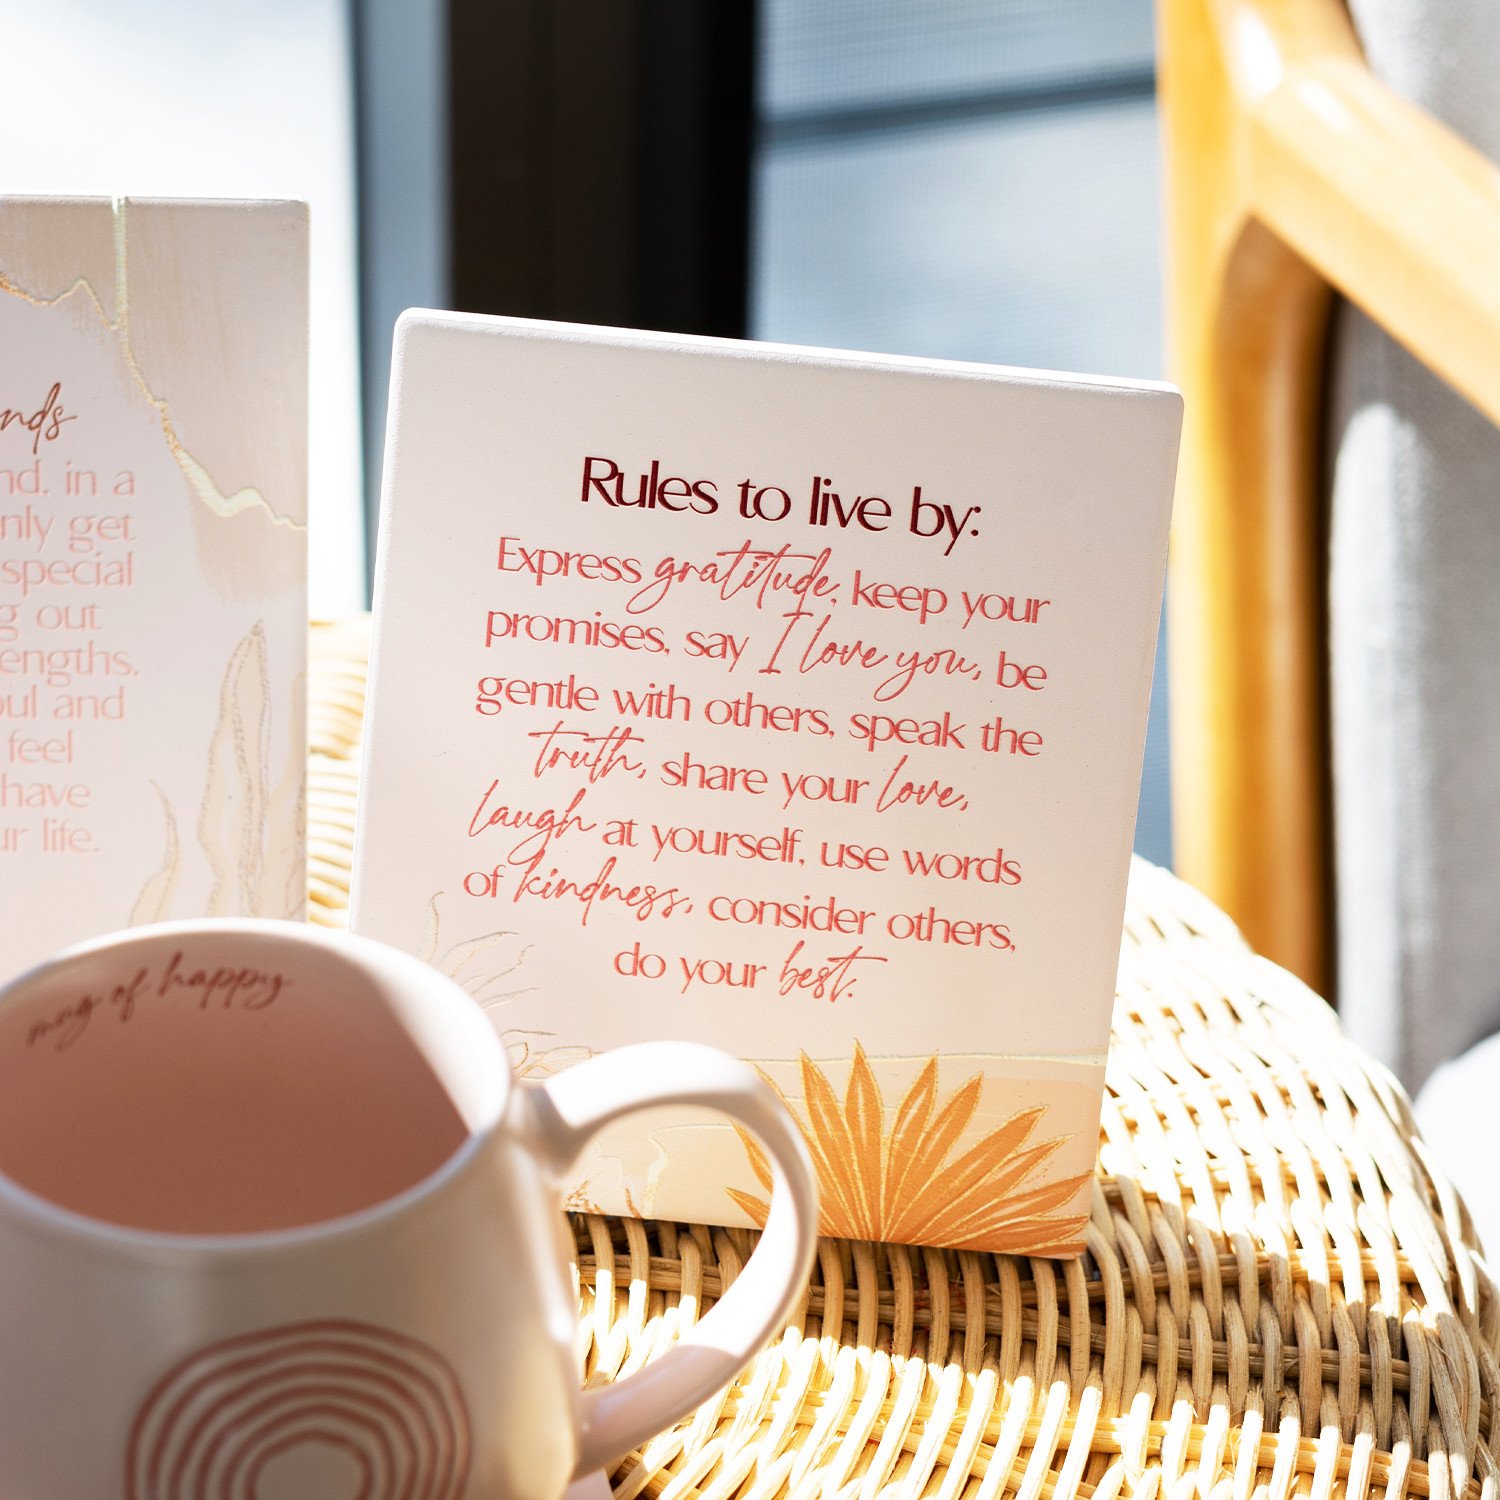 nds
nd, in a
nly get
special
g out
engths,
ul and
feel
have
ur life.
Rules to live by:
Express gratitude, keep your
promises, say I love you, be
gentle with others, speak the
truth, share your love,
laugh at yourself, use words
of kindness, consider others,
do your best.
mug of happy